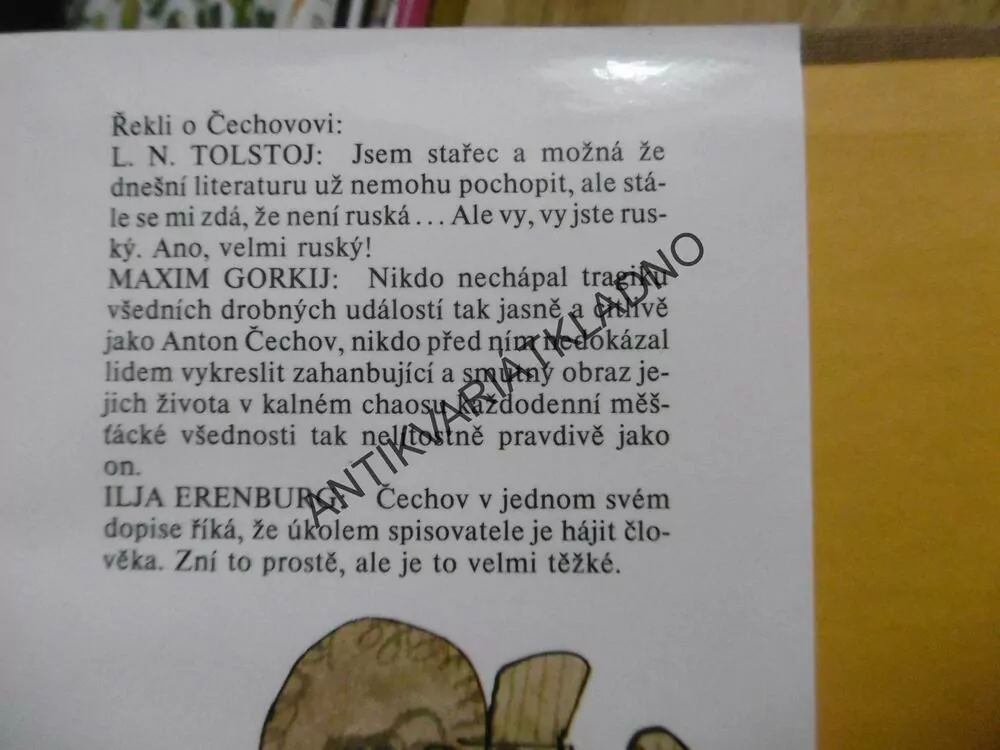 Řekli o Čechovovi:
L. N. TOLSTOJ: Jsem stařec a možná že
dnešní literaturu už nemohu pochopit, ale stá-
le se mi zdá, že není ruská... Ale vy, vy jste rus-
ký. Ano, velmi ruský!
MAXIM GORKIJ: Nikdo nechápal tragiku
všedních drobných událostí tak jasně a citlivě
jako Anton Čechov, nikdo před ním nedokázal
lidem vykreslit zahanbující a smutný obraz je-
jich života v kalném chaosu každodenní měš-
ťácké všednosti tak nelítostně pravdivě jako
on.
ILJA ERENBURG: Čechov v jednom svém
dopise říká, že úkolem spisovatele je hájit člo-
věka. Zní to prostě, ale je to velmi těžké.
ANTIKVARIÁTKLADNO